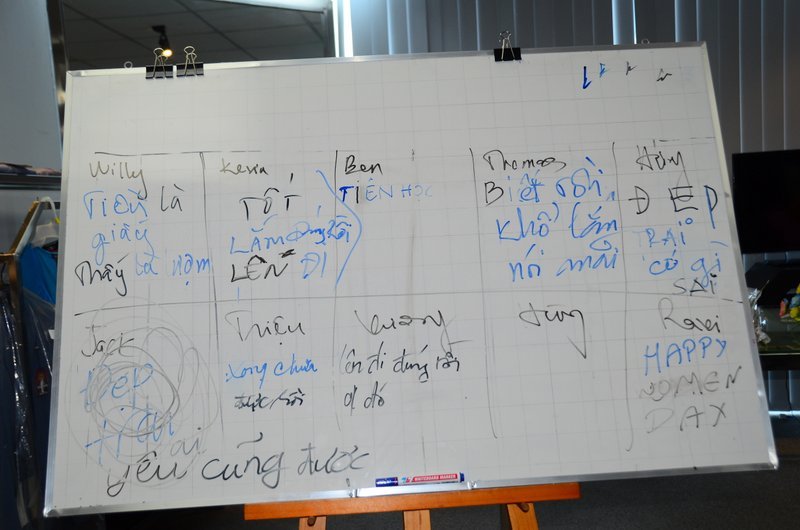 Willy
Tiền là
giấy
Thấy là nợm
Kevin
TỐT
LẮM đúng rồi
LÊN ĐI
Ben
TIÊN HỌC
Thomas
Biết rồi
khổ lắm
nói mãi
Hùng
ĐẸP
TRAI
có gì
SAI
Jack
Đẹp
trai
Triệu
xong chưa
được rồi
Vương
lên đi đúng rồi
gì đó
Hùng
Ravi
HAPPY
WOMEN
DAY
yêu cũng được
WHITEBOARD MARKER